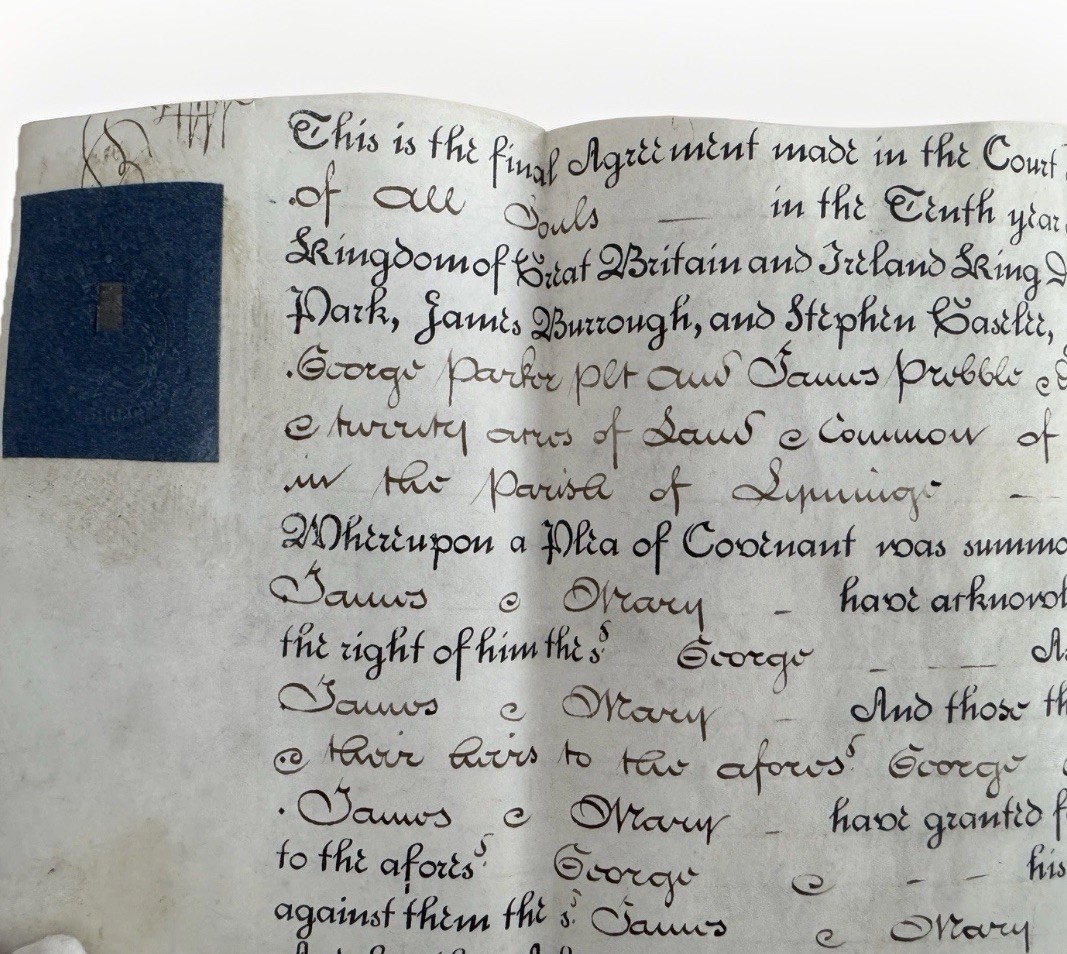 This is the final Agreement made in the Court
of all Souls — in the Tenth year
Kingdom of Great Britain and Ireland King
Park, James Burrough, and Stephen Gaselee,
George Parker plt and James Prebble &
& twenty acres of Land & Common of
in the Parish of Lyminge -
Whereupon a Plea of Covenant was summo
James & Mary - have acknowl
the right of him the sd George - — —
James & Mary - And those th
& their heirs to the aforesd George
James & Mary - have granted f
to the aforesd George & - - his
against them the sd James & Mary